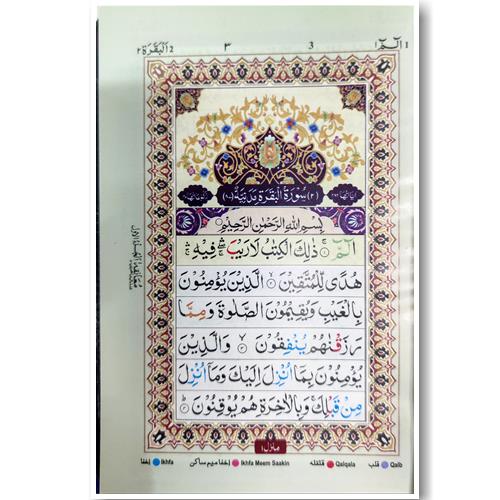 الٓمّٓ ١ 1
3
٣
2 اَلْبَقَرَة ٢
(٢) سُوْرَةُ الْبَقَرَةِ مَدَنِيَّةٌ
بِسْمِ اللّٰهِ الرَّحْمٰنِ الرَّحِيْمِ
الٓمّٓ ۚ ذٰلِكَ الْكِتٰبُ لَا رَيْبَ ۛ فِيْهِ ۛ
هُدًى لِّلْمُتَّقِيْنَ ۙ الَّذِيْنَ يُؤْمِنُوْنَ
بِالْغَيْبِ وَيُقِيْمُوْنَ الصَّلٰوةَ وَمِمَّا
رَزَقْنٰهُمْ يُنْفِقُوْنَ ۙ وَالَّذِيْنَ
يُؤْمِنُوْنَ بِمَآ اُنْزِلَ اِلَيْكَ وَمَآ اُنْزِلَ
مِنْ قَبْلِكَ ۚ وَبِالْاٰخِرَةِ هُمْ يُوْقِنُوْنَ ؕ
منزل ١
اخفا Ikhfa اخفا میم ساکن Ikhfa Meem Saakin قلقلہ Qalqala قلب Qalb